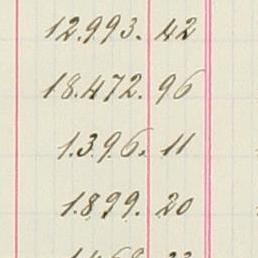 12.993. 42
18.472. 96
1.396. 11
1.899. 20